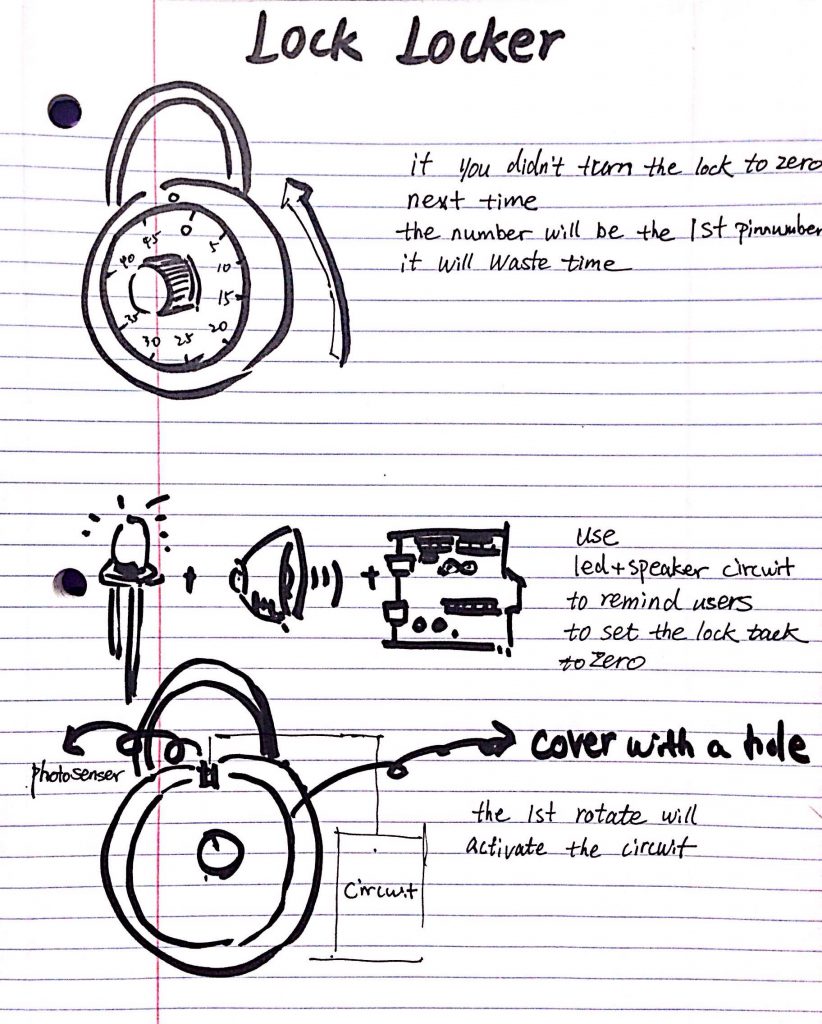 Lock Locker
it you didn't turn the lock to zero
next time
the number will be the 1st pinnumber
it will waste time
0
0
45
5
40
10
15
35
20
30
25
use
led+speaker circuit
to remind users
to set the lock back
to zero
photosenser
cover with a hole
the 1st rotate will
activate the circuit
Circuit